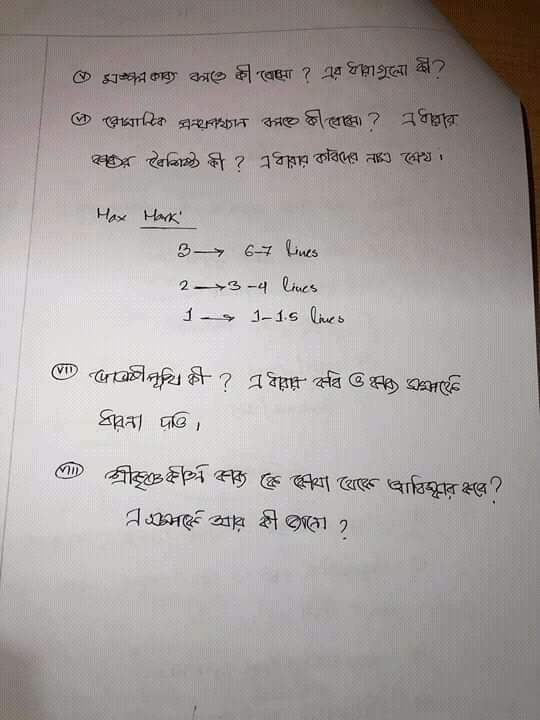 (v) মঙ্গল কাব্য বলতে কী বোঝো ? এর ধারাগুলো কী ?
(vi) রোমান্টিক প্রনয়পখ্যান বলতে কী বোঝো ? এ ধারার
কাব্যের বৈশিষ্ট্য কী ? এ ধারার কবিদের নাম লেখ ।
Max Mark'
3 → 6-7 lines
2 → 3-4 lines
1 → 1-1.5 lines
(VII) দোভাষী পুথি কী ? এ ধারার কবি ও কাব্য সম্পর্কে
ধারনা দাও ।
(VIII) শ্রীকৃষ্ণকীর্তন কাব্য কে কোথা থেকে আবিষ্কার করে ?
এ সম্পর্কে আর কী জানো ?